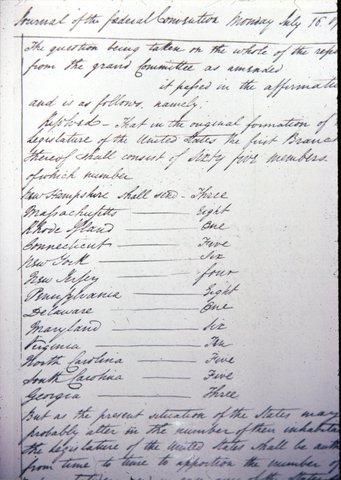 Journal of the federal Convention Monday July 16. 87
The question being taken on the whole of the repo
from the grand Committee as amended
it passed in the affirmativ
and is as follows, namely.
Resolved - That in the original formation of
Legislature of the United States the first Branc
thereof shall consist of Sixty five members.
of which number
New Hampshire shall send - Three
Massachusetts ——— Eight
Rhode Island ——— One
Connecticut ——— Five
New York ——— Six
New Jersey ——— four
Pennsylvania ——— Eight
Delaware ——— One
Maryland ——— Six
Virginia ——— Ten
North Carolina ——— Five
South Carolina ——— Five
Georgia ——— Three
But as the present situation of the States may
probably alter in the number of their inhabitan
the legislature of the United States shall be auth
from time to time to apportion the number of